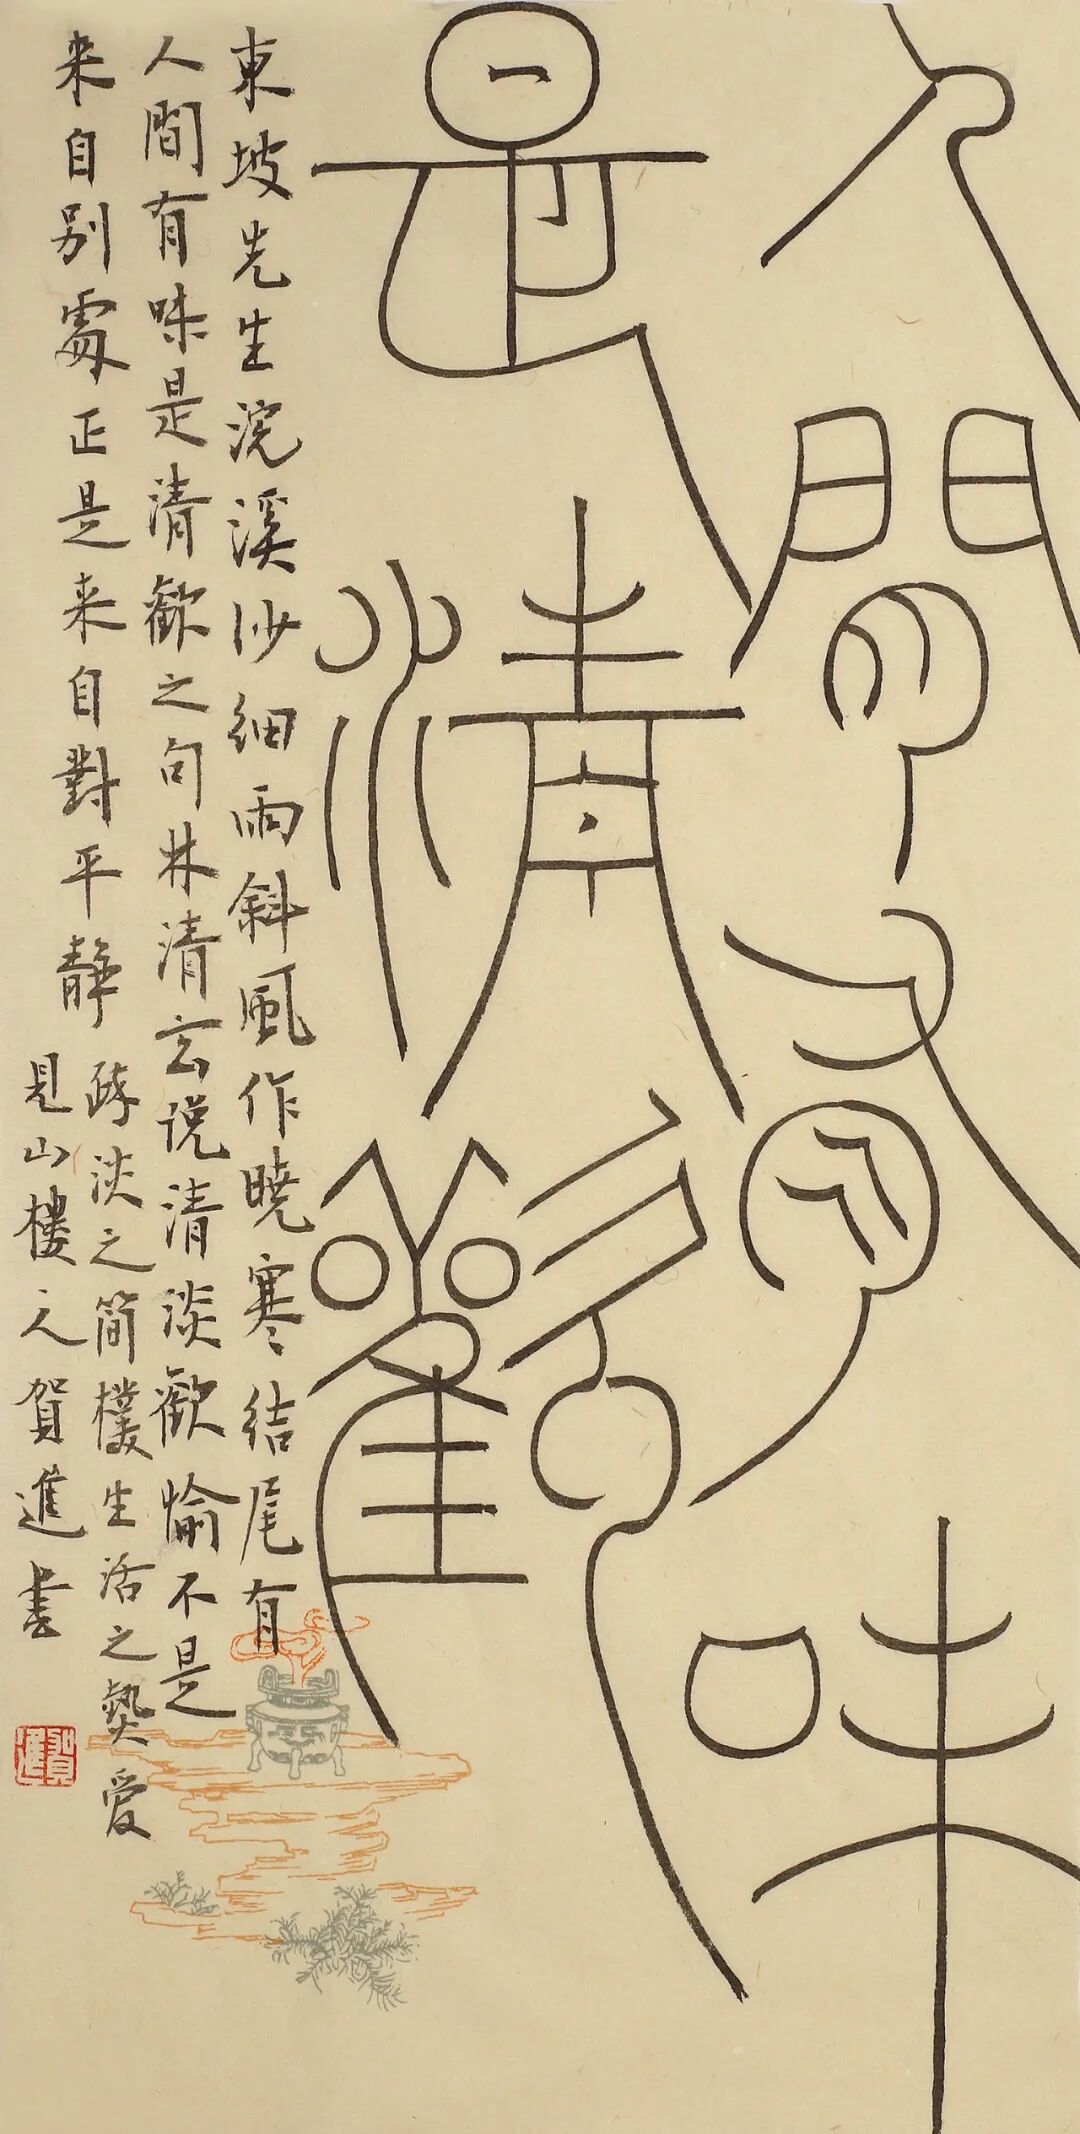 人間有味
是清歡
東坡先生浣溪沙細雨斜風作曉寒結尾有
人間有味是清歡之句林清玄説清淡歡愉不是
来自别處正是来自對平静疏淡之簡樸生活之熱愛
見山樓人賀進書
賀進